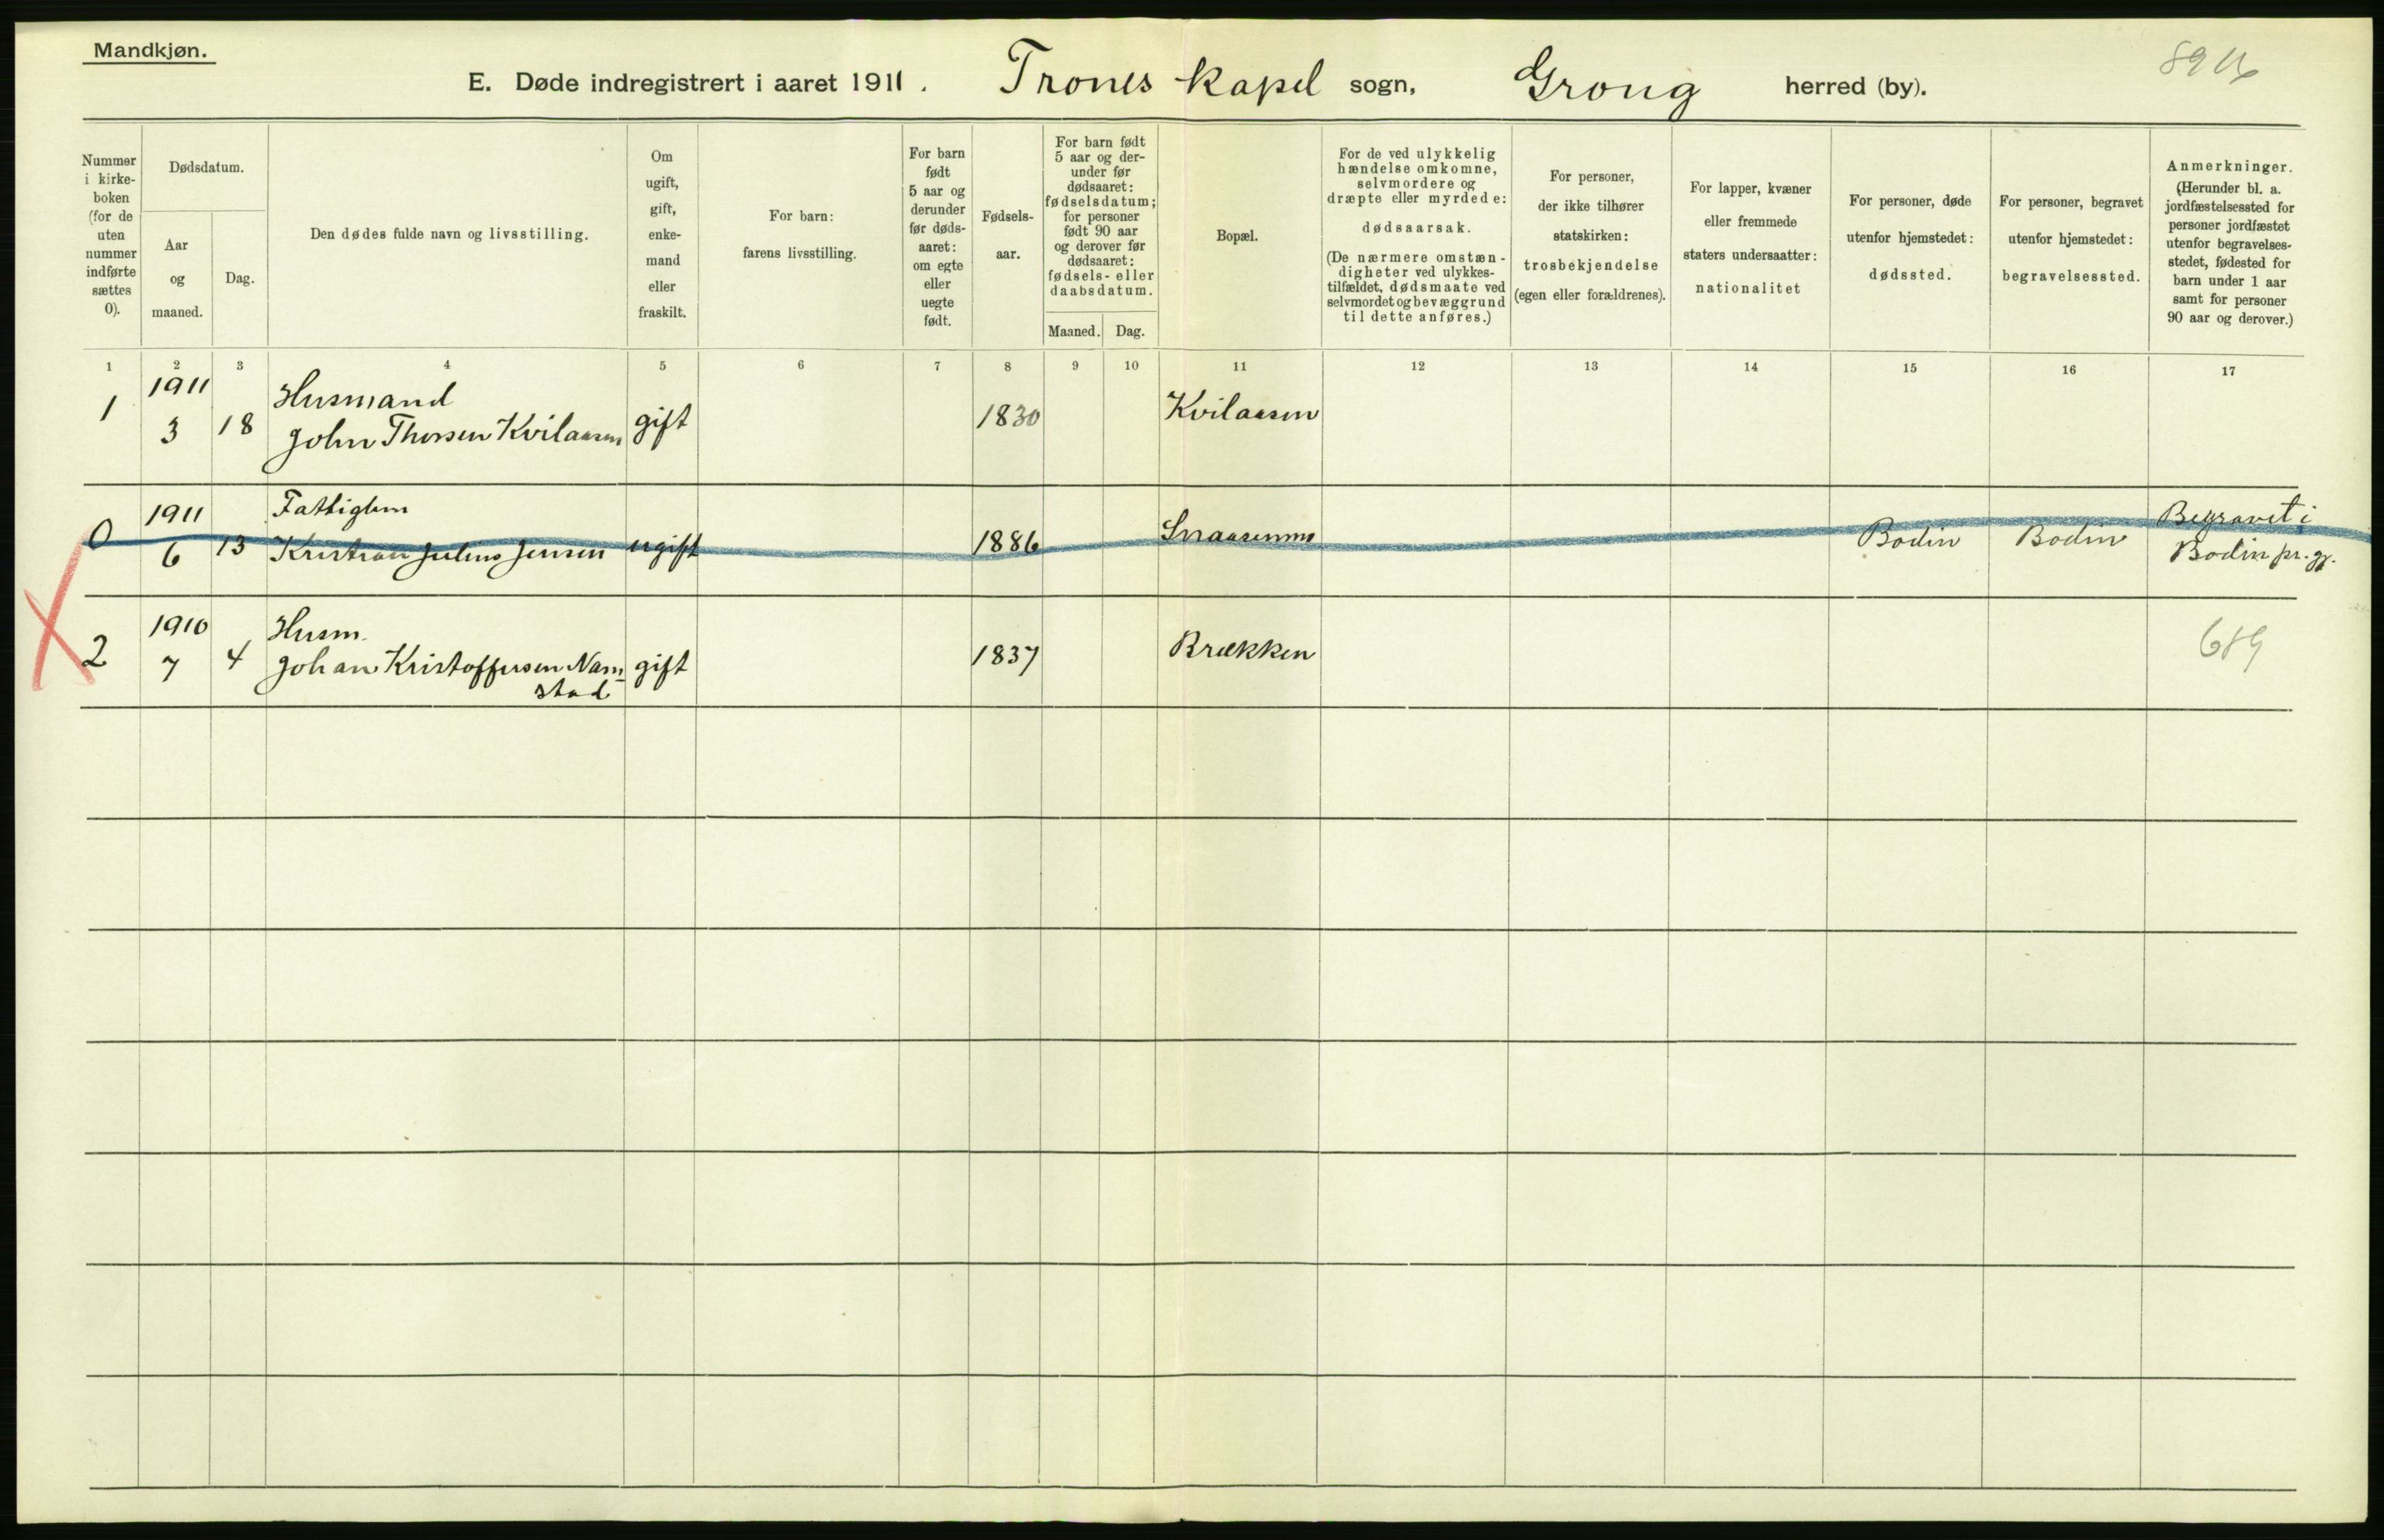 Mandkjøn.
E. Døde indregistrert i aaret 1911. Trones kapel sogn, Grong herred (by).
Nummer i kirke- boken (for de uten nummer indførte sættes 0).
Dødsdatum.
Aar og maaned.
Dag.
Den dødes fulde navn og livsstilling.
Om ugift, gift, enke- mand eller fraskilt.
For barn: farens livsstilling.
For barn født 5 aar og derunder før døds- aaret: om egte eller uegte født.
Fødsels- aar.
For barn født 5 aar og der- under før dødsaaret: fødselsdatum; for personer født 90 aar og derover før dødsaaret: fødsels- eller daabsdatum.
Maaned. Dag.
Bopæl.
For de ved ulykkelig hændelse omkomne, selvmordere og dræpte eller myrdede: dødsaarsak. (De nærmere omstæn- digheter ved ulykkes- tilfældet, dødsmaate ved selvmordet og bevæggrund til dette anføres.)
For personer, der ikke tilhører statskirken: trosbekjendelse (egen eller forældrenes).
For lapper, kvæner eller fremmede staters undersaatter: nationalitet
For personer, døde utenfor hjemstedet: dødssted.
For personer, begravet utenfor hjemstedet: begravelsessted.
Anmerkninger. (Herunder bl. a. jordfæstelsessted for personer jordfæstet utenfor begravelses- stedet, fødested for barn under 1 aar samt for personer 90 aar og derover.)
1 2 3 4 5 6 7 8 9 10 11 12 13 14 15 16 17
1911 Husmand
1 3 18 John Thorsen Kvilaasen gift 1830 Kvilaasen
1911 Fattiglem
0 6 13 Kristian Julius Jensen ugift 1886 Bodin Bodin Begravet i
Bodin pr. gj.
1910 Husm.
2 7 4 Johan Kristoffersen Nam- gift 1837 Brækken 689
stad